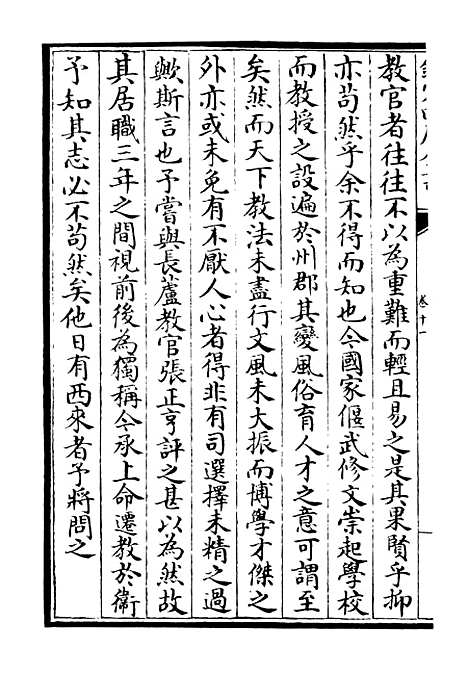 教官者往往不以為重難而輕且易之是其果賢乎抑
亦苟然乎余不得而知也今國家偃武修文崇起學校
而教授之設遍於州郡其變風俗育人才之意可謂至
矣然而天下教法未盡行文風未大振而博學才傑之
外亦或未免有不厭人心者得非有司選擇未精之過
歟斯言也予嘗與長蘆教官張正亨評之甚以為然故
其居職三年之間視前後為獨稱今承上命遷教於衛
予知其志必不苟然矣他日有西來者予將問之
卷十一